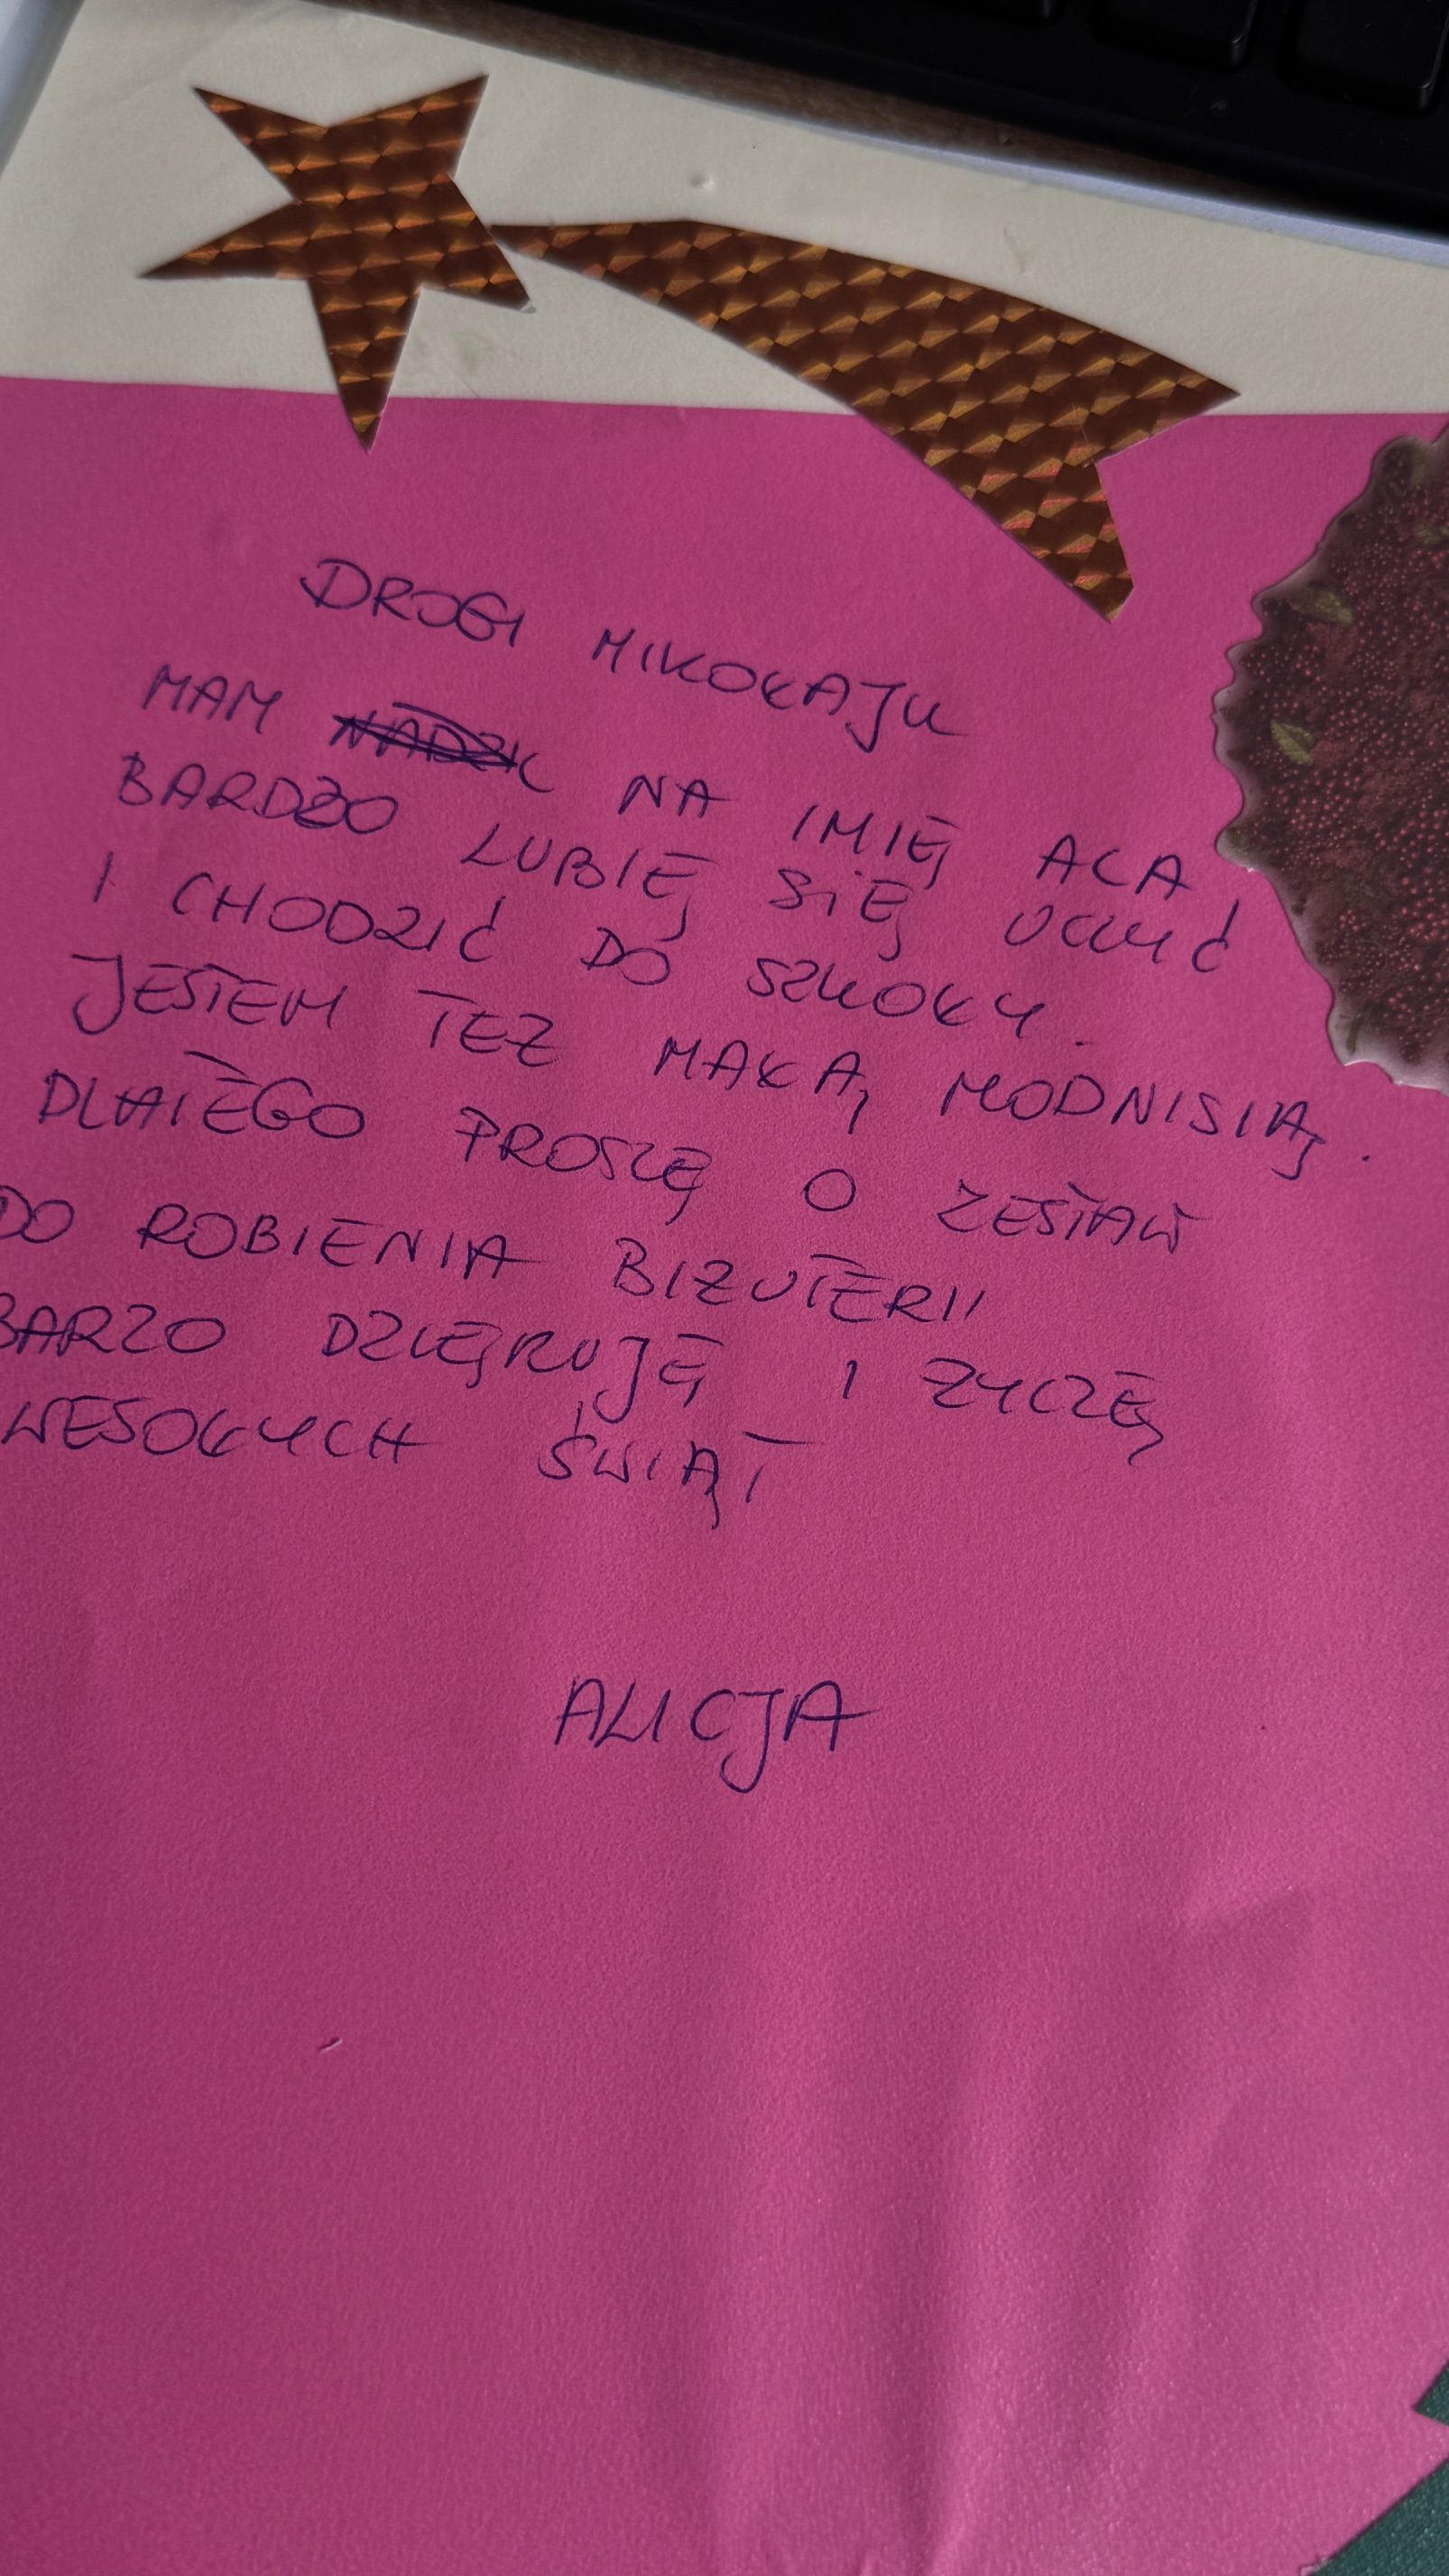 DROGI MIKOŁAJU
MAM NA IMIĘ ALA
BARDZO LUBIĘ SIĘ UCZYĆ
I CHODZIĆ DO SZKOŁY.
JESTEM TEZ MAŁĄ MODNISIĄ.
DLATEGO PROSZĘ O ZESTAW
DO ROBIENIA BIZUTERII
BARZO DZIĘKUJĘ I ZYCZĘ
WESOŁYCH ŚWIĄT
ALICJA